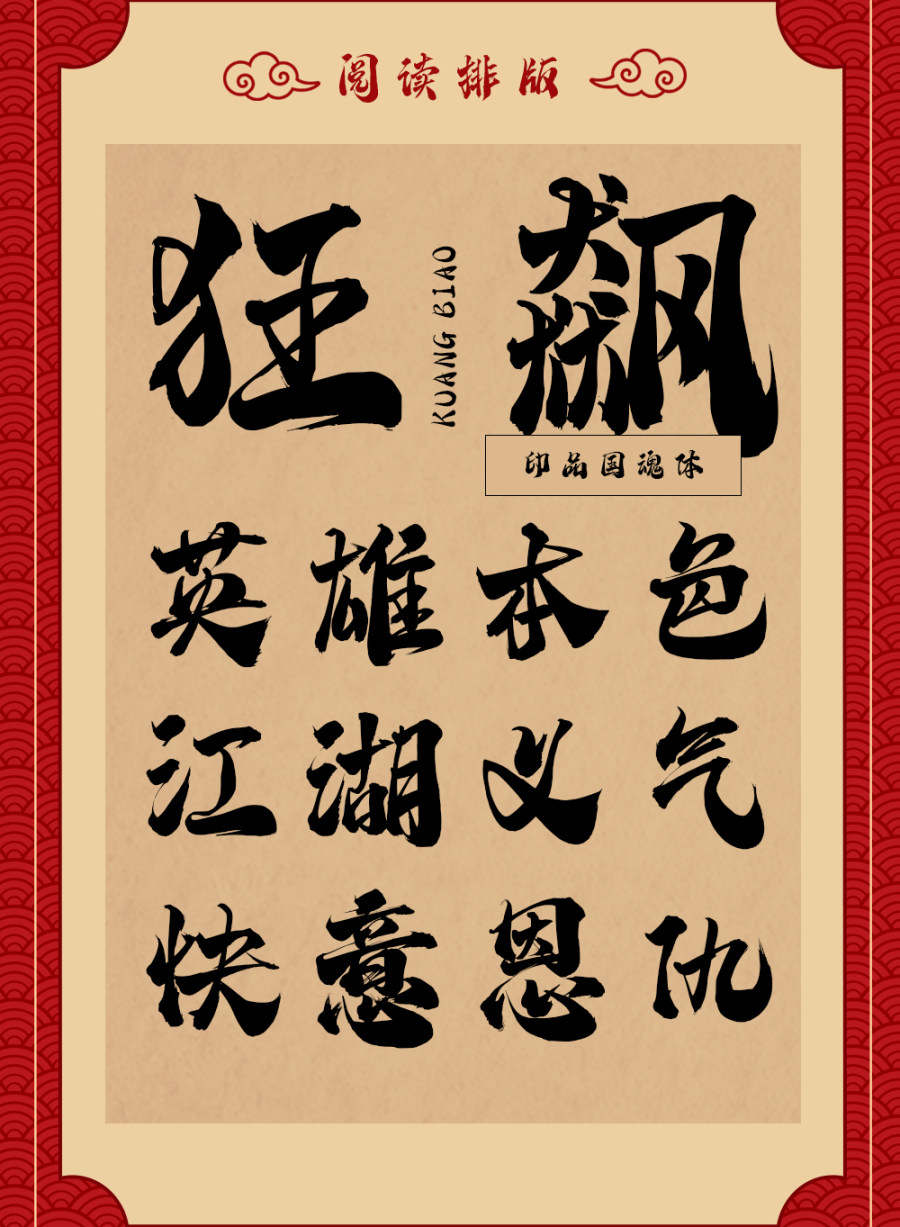 阅读排版
狂飙
KUANG BIAO
印品国魂体
英雄本色
江湖义气
快意恩仇